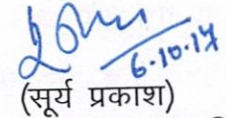 6.10.17
(सूर्य प्रकाश)